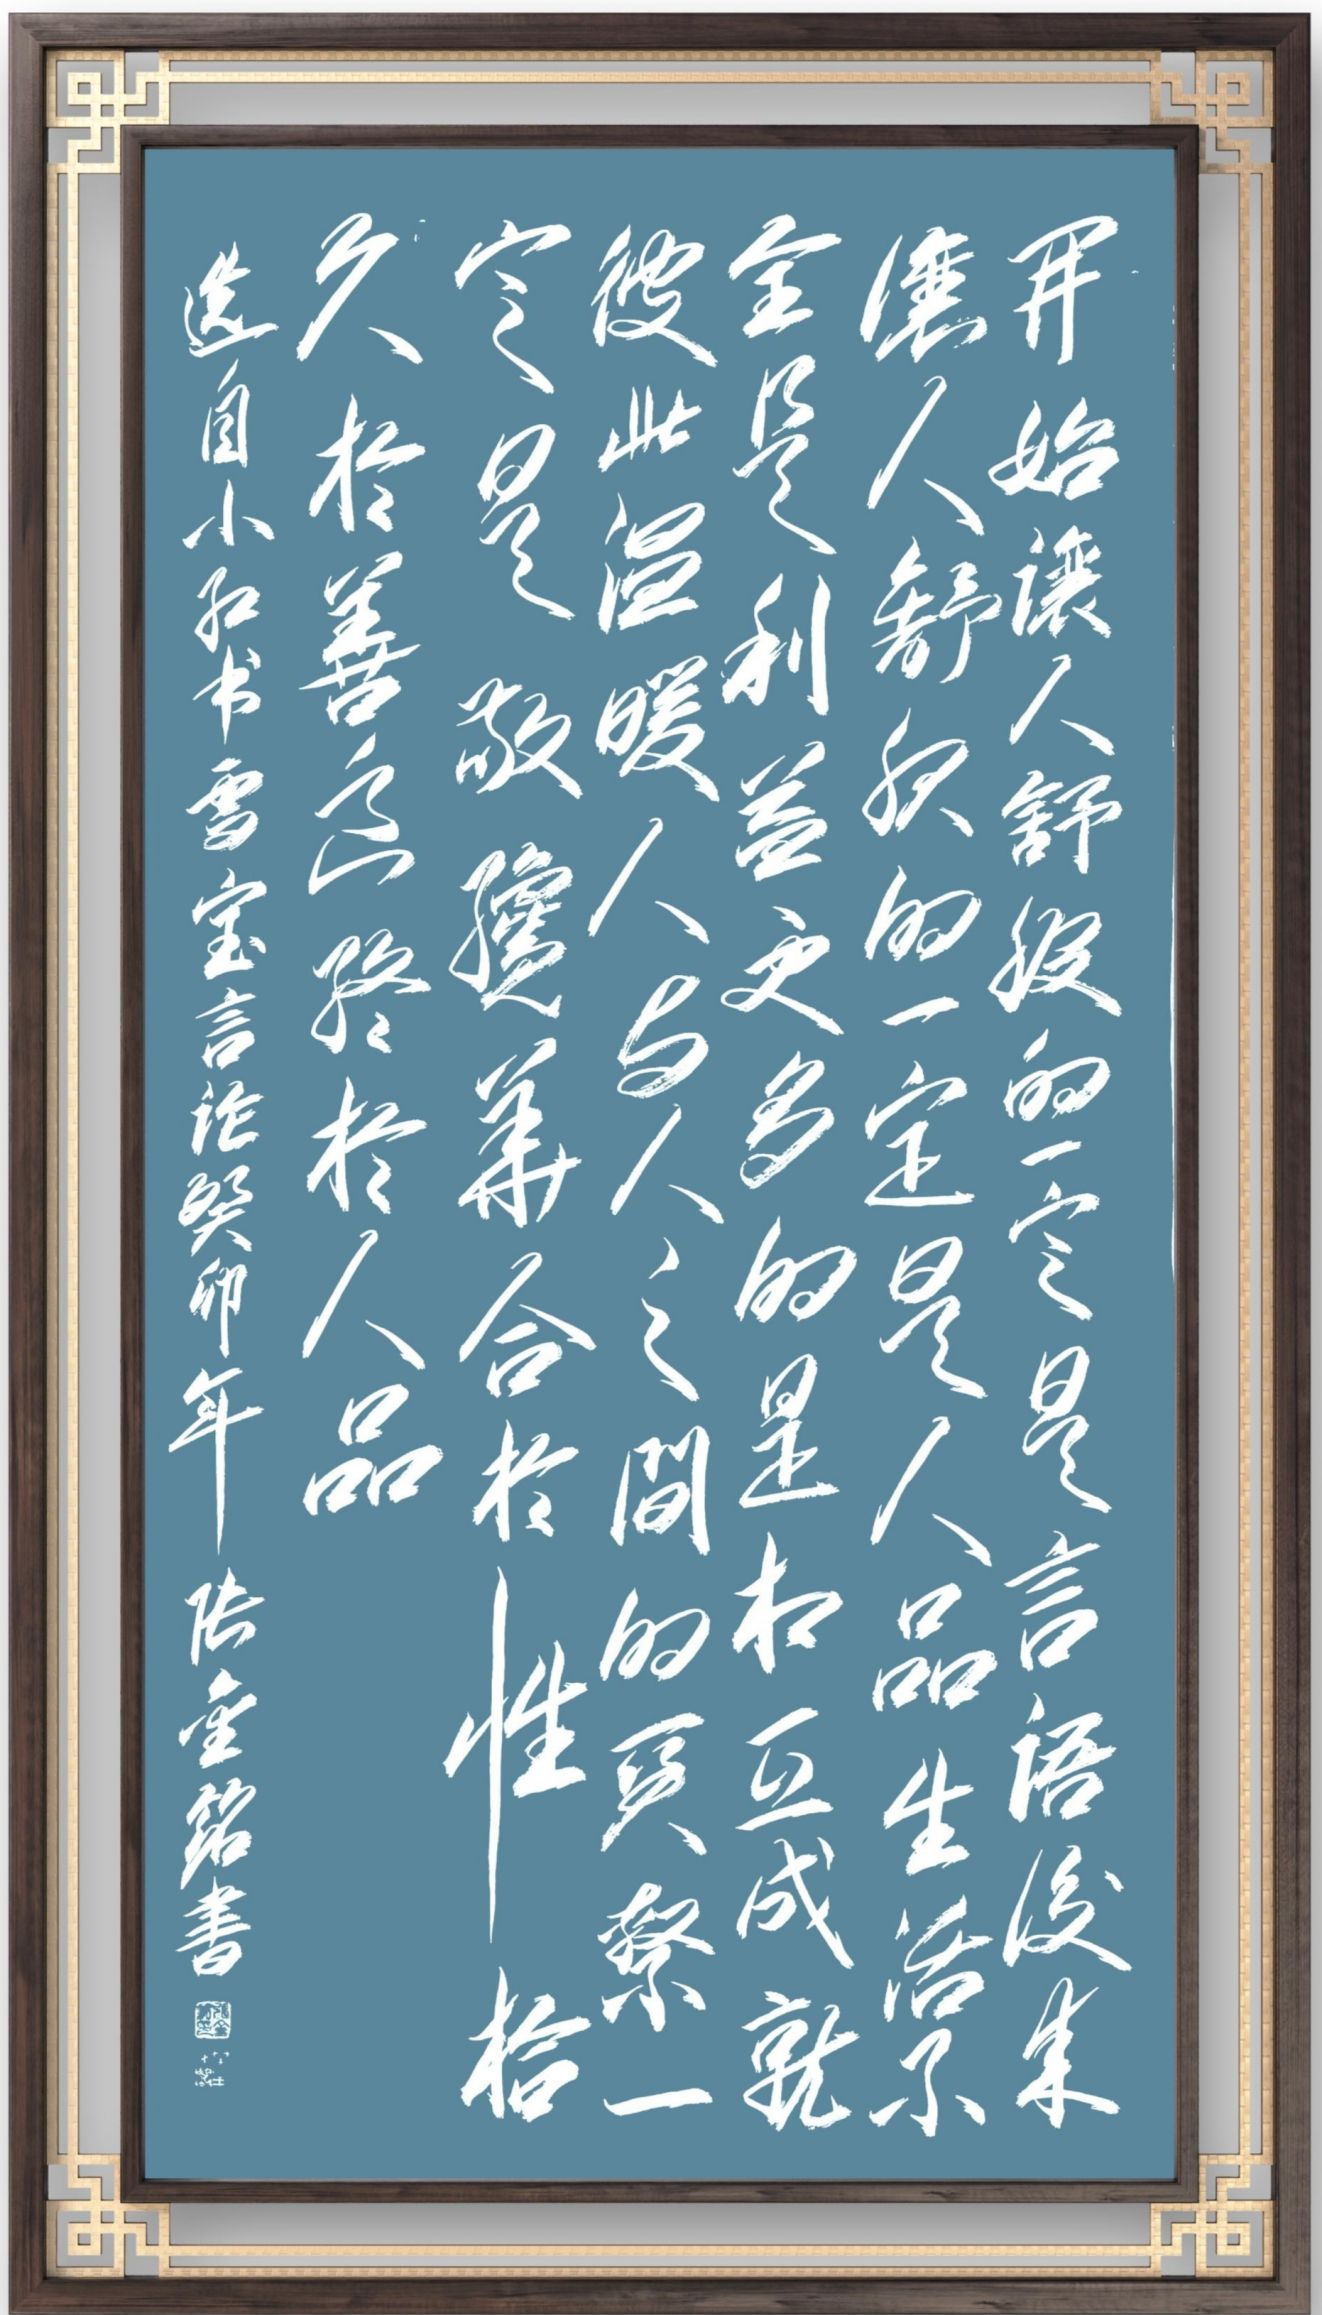 开始讓人舒服的一定是言語後来
讓人舒服的一定是人品生活不
全是利益更多的是相互成就
彼此温暖人与人之間的繫一
定是敬纔華合於性格
久於善良終於人品
选自小红书雪宝言论癸卯年金銘書